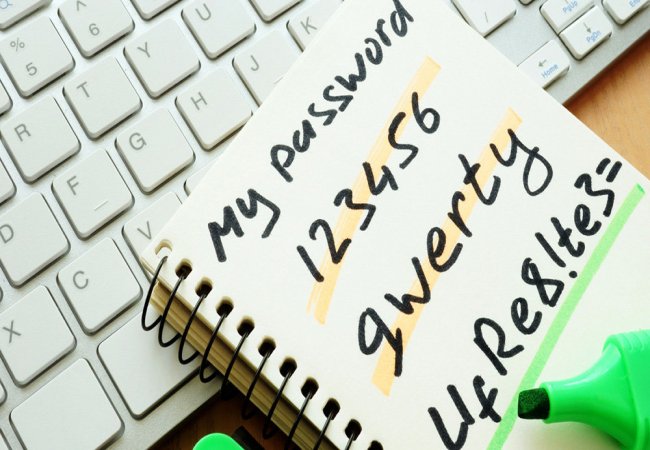 My password
123456
qwerty
UfRe8!te3=
%
5
^
6
T
Y
U
R
F
G
H
J
K
D
C
V
X
Home
PgUp
PgDn